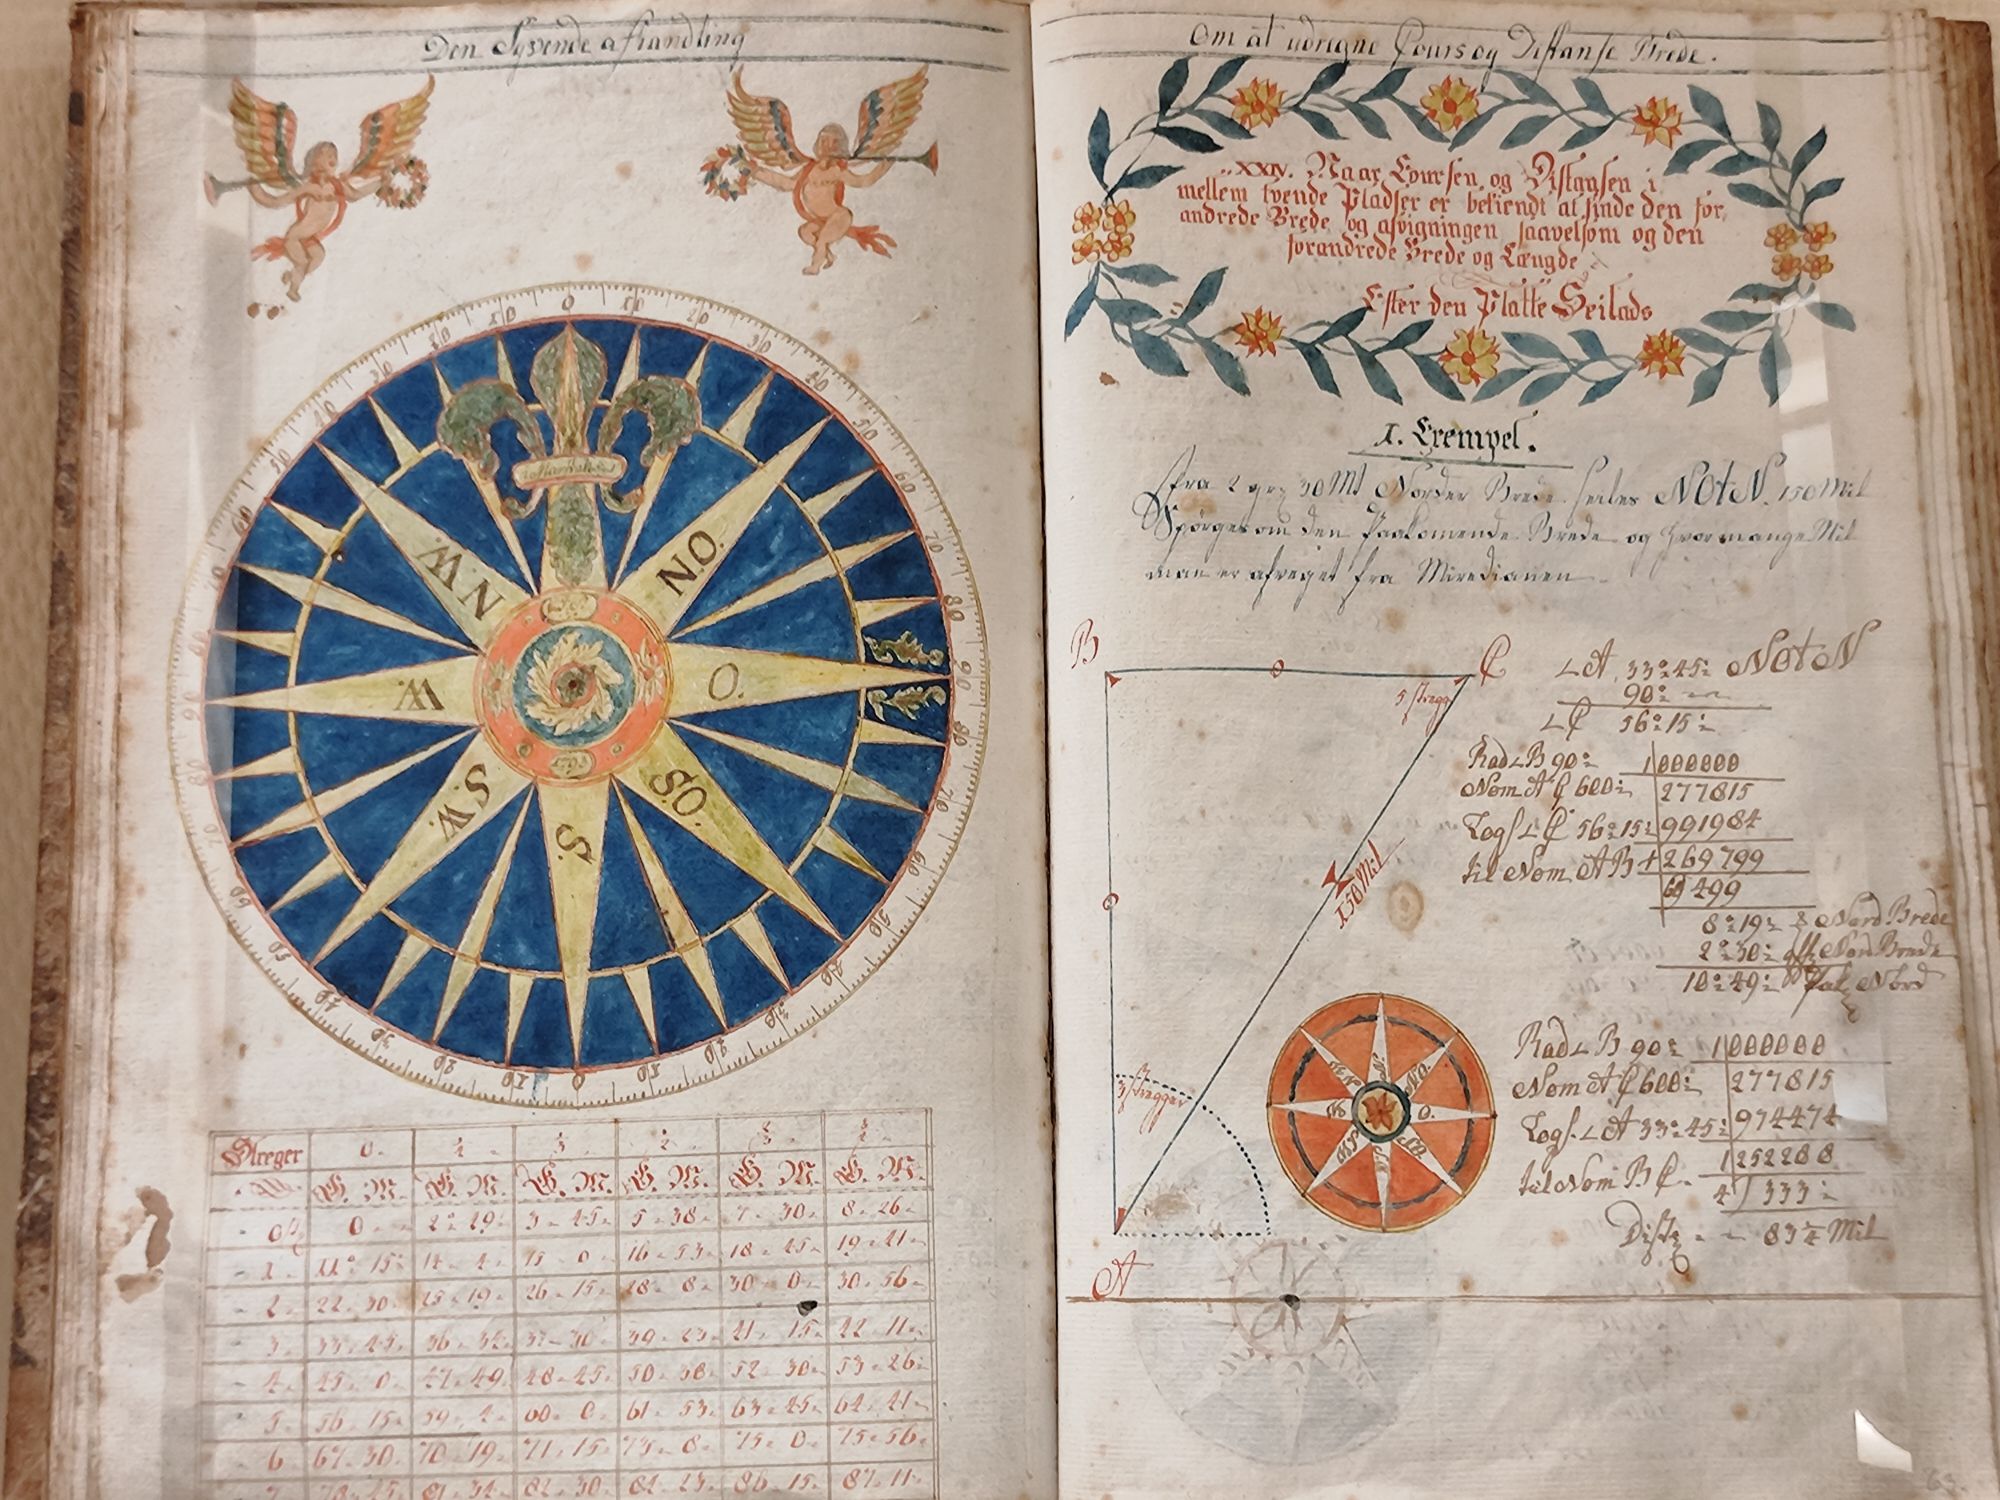 Den Syvende afhandling
0 10 20 30 40 50 60 70 80 90
N.O.
O.
S.O.
S.
S.W.
W.
N.W.
Streger 0. 1/4 1/3 1/2 2/3 3/4
G. M. G. M. G. M. G. M. G. M. G. M.
0 2° 49 3 45 5 38 7 30 8 26
1 11° 15 14 4 15 0 16 53 18 45 19 41
2 22 30 25 19 26 15 28 8 30 0 30 56
3 33 45 36 34 37 30 39 23 41 15 42 11
4 45 0 47 49 48 45 50 38 52 30 53 26
5 56 15 59 4 60 0 61 53 63 45 64 41
6 67 30 70 19 71 15 73 8 75 0 75 56
7 78 45 81 34 82 30 84 23 86 15 87 11
Om at udregne Cours og Distanse Brede.
XXIV. Naar Coursen og Distansen i
mellem tvende Pladser er bekiendt at finde den for,
andrede Brede og afvigningen saavelsom og den
forandrede Brede og Længde
Efter den Platte Seilads
1. Exempel.
Fra 2 grz 30 Mt Norder Brede seiles NOtN. 150 Mil
Spørges om den Paakomende Brede og hvor mange Mil
man er afveget fra Miredianen
B
C
5 stregg
∠A 33° 45 NOtN
90°
∠C 56° 15
Rad ∠B 90° 1000000
Nom A C 600 277815
Logs ∠C 56° 15 991984
til Nom AB + 269799
499
8° 19 Nord Brede
2° 30 Nord Brede
10° 49 Nord
150 Mil
3 stregger
N.O.
O.
Rad ∠B 90° 1000000
Nom A C 600 277815
Logs. ∠A 33° 45 974474
til Nom B C. 1252288
4) 333
Distz 83 1/4 Mil
A